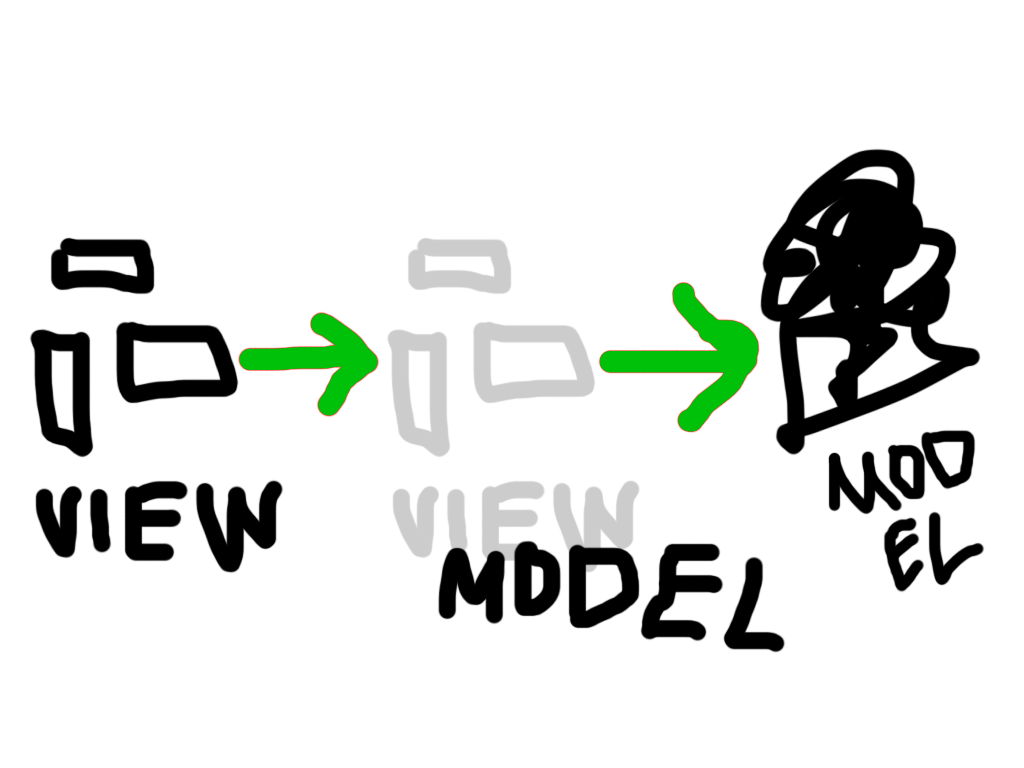 VIEW
VIEW
MODEL
MOD
EL